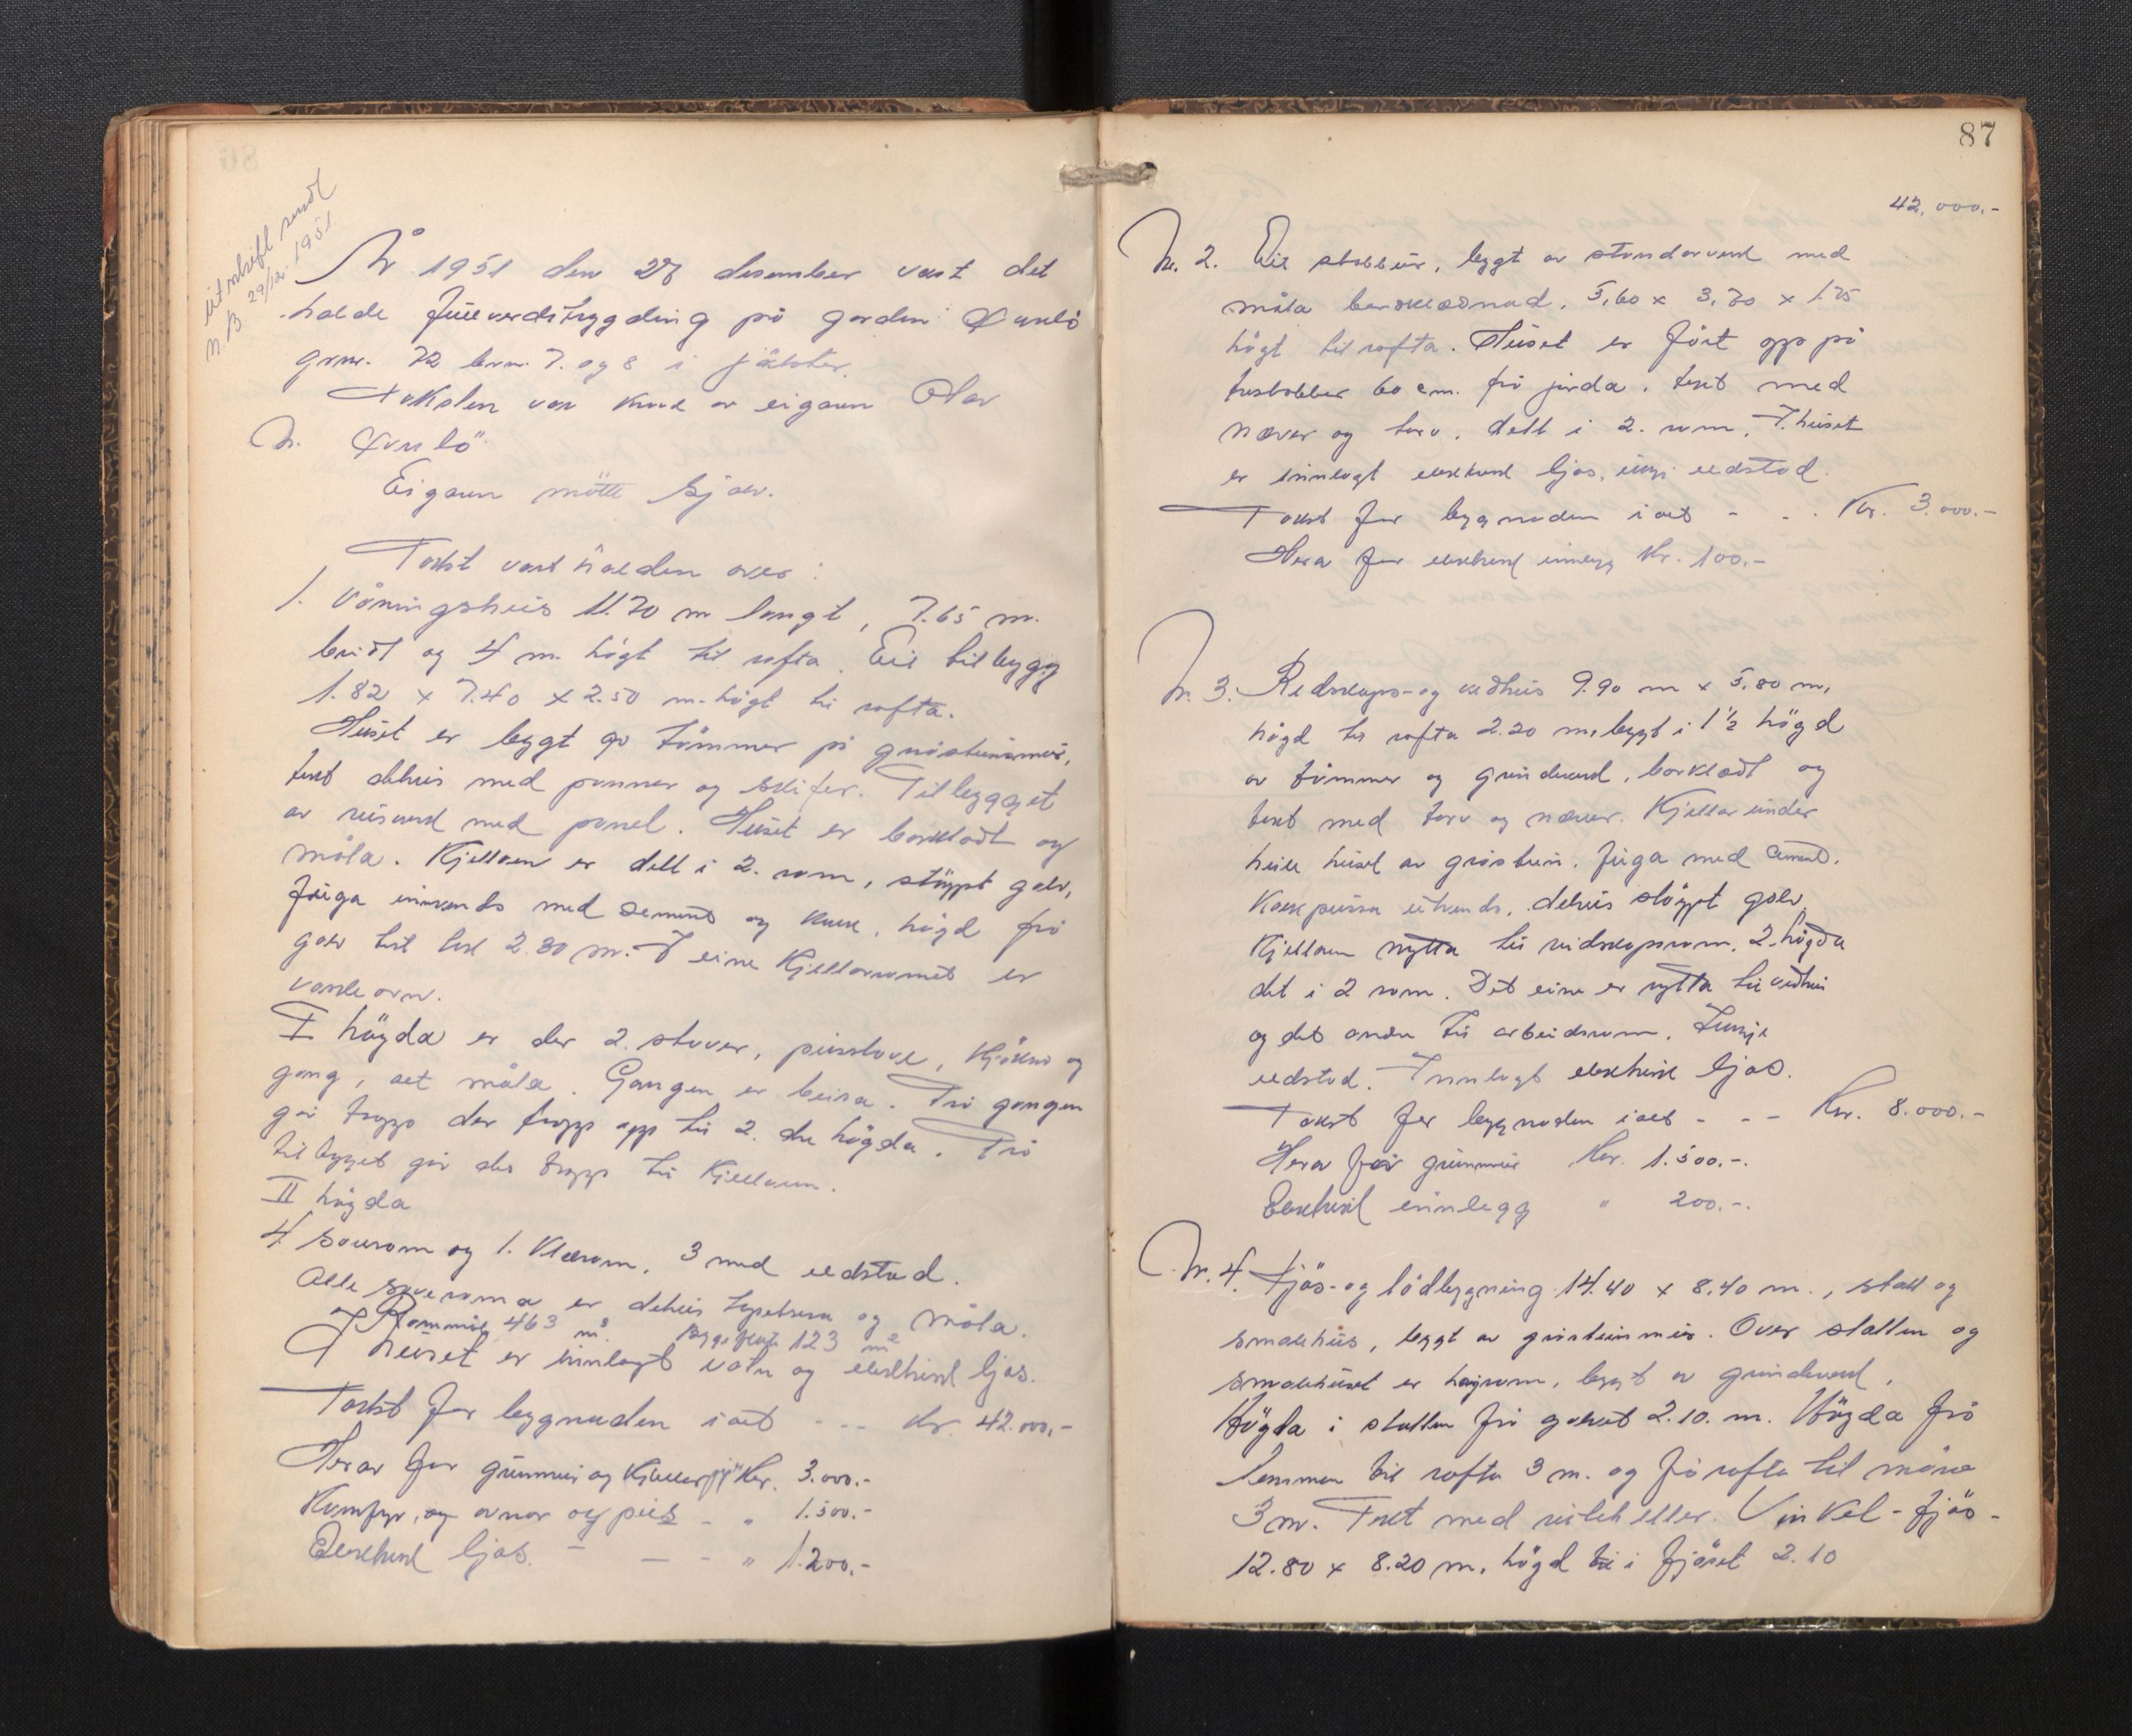 Utskrift sendt
N.B 29/12. 1951
År 1951 den 28 desember vart det
halde fullverdstrygding på garden Kvalö
grnr. 72 brnr. 7. og 8 i
Taksten var kravd av eigaren Olav
N. Kvalö
Eigaren mötte sjølv.
Takst vart halden over:
1. Våningshus 11.70 m langt, 7.65 m.
breidt og 4 m. högt til rafta. Eit tilbygg
1.82 x 7.40 x 2.50 m. högt til rafta.
Huset er bygt av tömmer på gråsteinsmur,
tekt delvis med panner og skifer. Tilbygget
av reisverk med panel. Huset er bordklædt og
måla. Kjellaren er delt i 2. rom, stöypt golv,
fuga innvends med sement og kalk, högd frå
golv til loft 2.30 m. I eine kjellarromet er
vaskeovn.
I högda er der 2. stover, peisstove, kjöken og
gang, alt måla. Gangen er beisa. Frå gangen
går trapp der trapp opp til 2. dre högda. Frå
tilbygget går der trapp til kjellaren.
II högda
4 soverom og 1. klærom. 3 med eldstad.
Alle soveroma er delvis tapetsera og måla.
Rommål 463 m³. Byggeflate 123 m²
I huset er innlagt vatn og elektrisk ljos.
Takst for bygnaden i alt - - - kr. 42.000,-
Herav for grunnmur og kjellar kr. 3.000.-
Komfyr, og ovnar og peis - " 1.500.-
Elektrisk ljos. - - - " 1.200.-
87
42,000.-
Nr. 2. Eit stabbur, bygt av standarverk med
måla bordklædnad. 5,60 x 3,70 x 1.75
högt til rafta. Huset er fört opp på
trestabber 60 cm. frå jorda, tekt med
næver og torv. delt i 2. rom. I huset
er innlagt elektrisk ljos, ingi eldstad.
Takst for bygnaden i alt - - . Kr. 3.000.-
Herav for elektrisk innlegg Kr. 100.-
Nr. 3. Reidskaps- og vedhus 9.90 m x 5,80 m,
högd til rafta 2.20 m, bygt i 1½ högd
av tömmer og grindverk, bordklædt og
tekt med torv og næver. Kjellar under
heile huset av gråstein, fuga med sement.
Kalkpussa utvends, delvis stöypt golv.
Kjellaren nytta til reidskapsrom. 2. högda
delt i 2 rom. Det eine er nytta til vedhus
og det andre til arbeidsrom. Inngje
eldstad. Innlagt elektrisk ljos.
Takst for bygnaden i alt - - - Kr. 8.000.-
Herav for grunnmur Kr. 1.500.-.
Elektrisk innlegg " 200.-.
Nr. 4. Fjös- og lödbygning 14.40 x 8,40 m., stall og
smalehus, bygt av gråsteinmur. Over stallen og
smalehuset er høyrom, bygt av grindverk.
Högda i stallen frå golvet 2.10. m. Högda frå
lemmen til rafta 3 m. og frå rafta til möne
3 m. Tekt med Vinkel-fjös-
12.80 x 8.20 m. högd til i fjöset 2.10